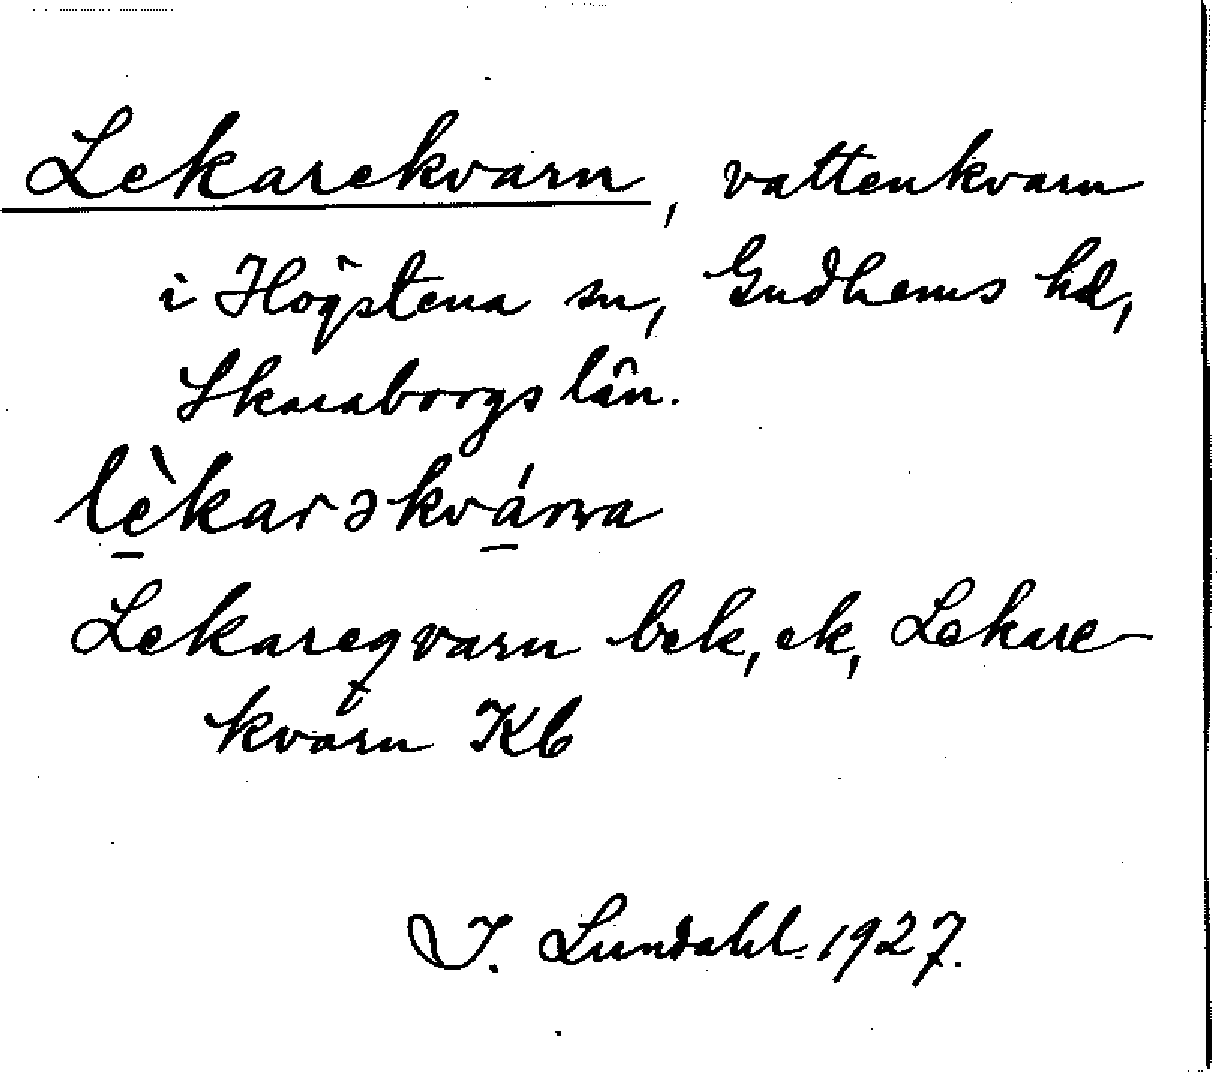 Lekarekvarn, vattenkvarn
i Högstena sn, Gudhems hd,
Skaraborgs län.
lèkarəkvárna
Lekareqvarn bek, ek, Lekare-
kvarn Kb
I. Lundahl. 1927.